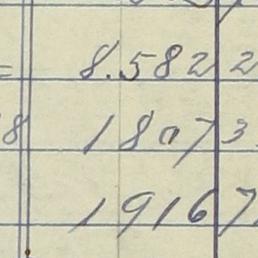 = 8.582 2
8 1807 3
19167